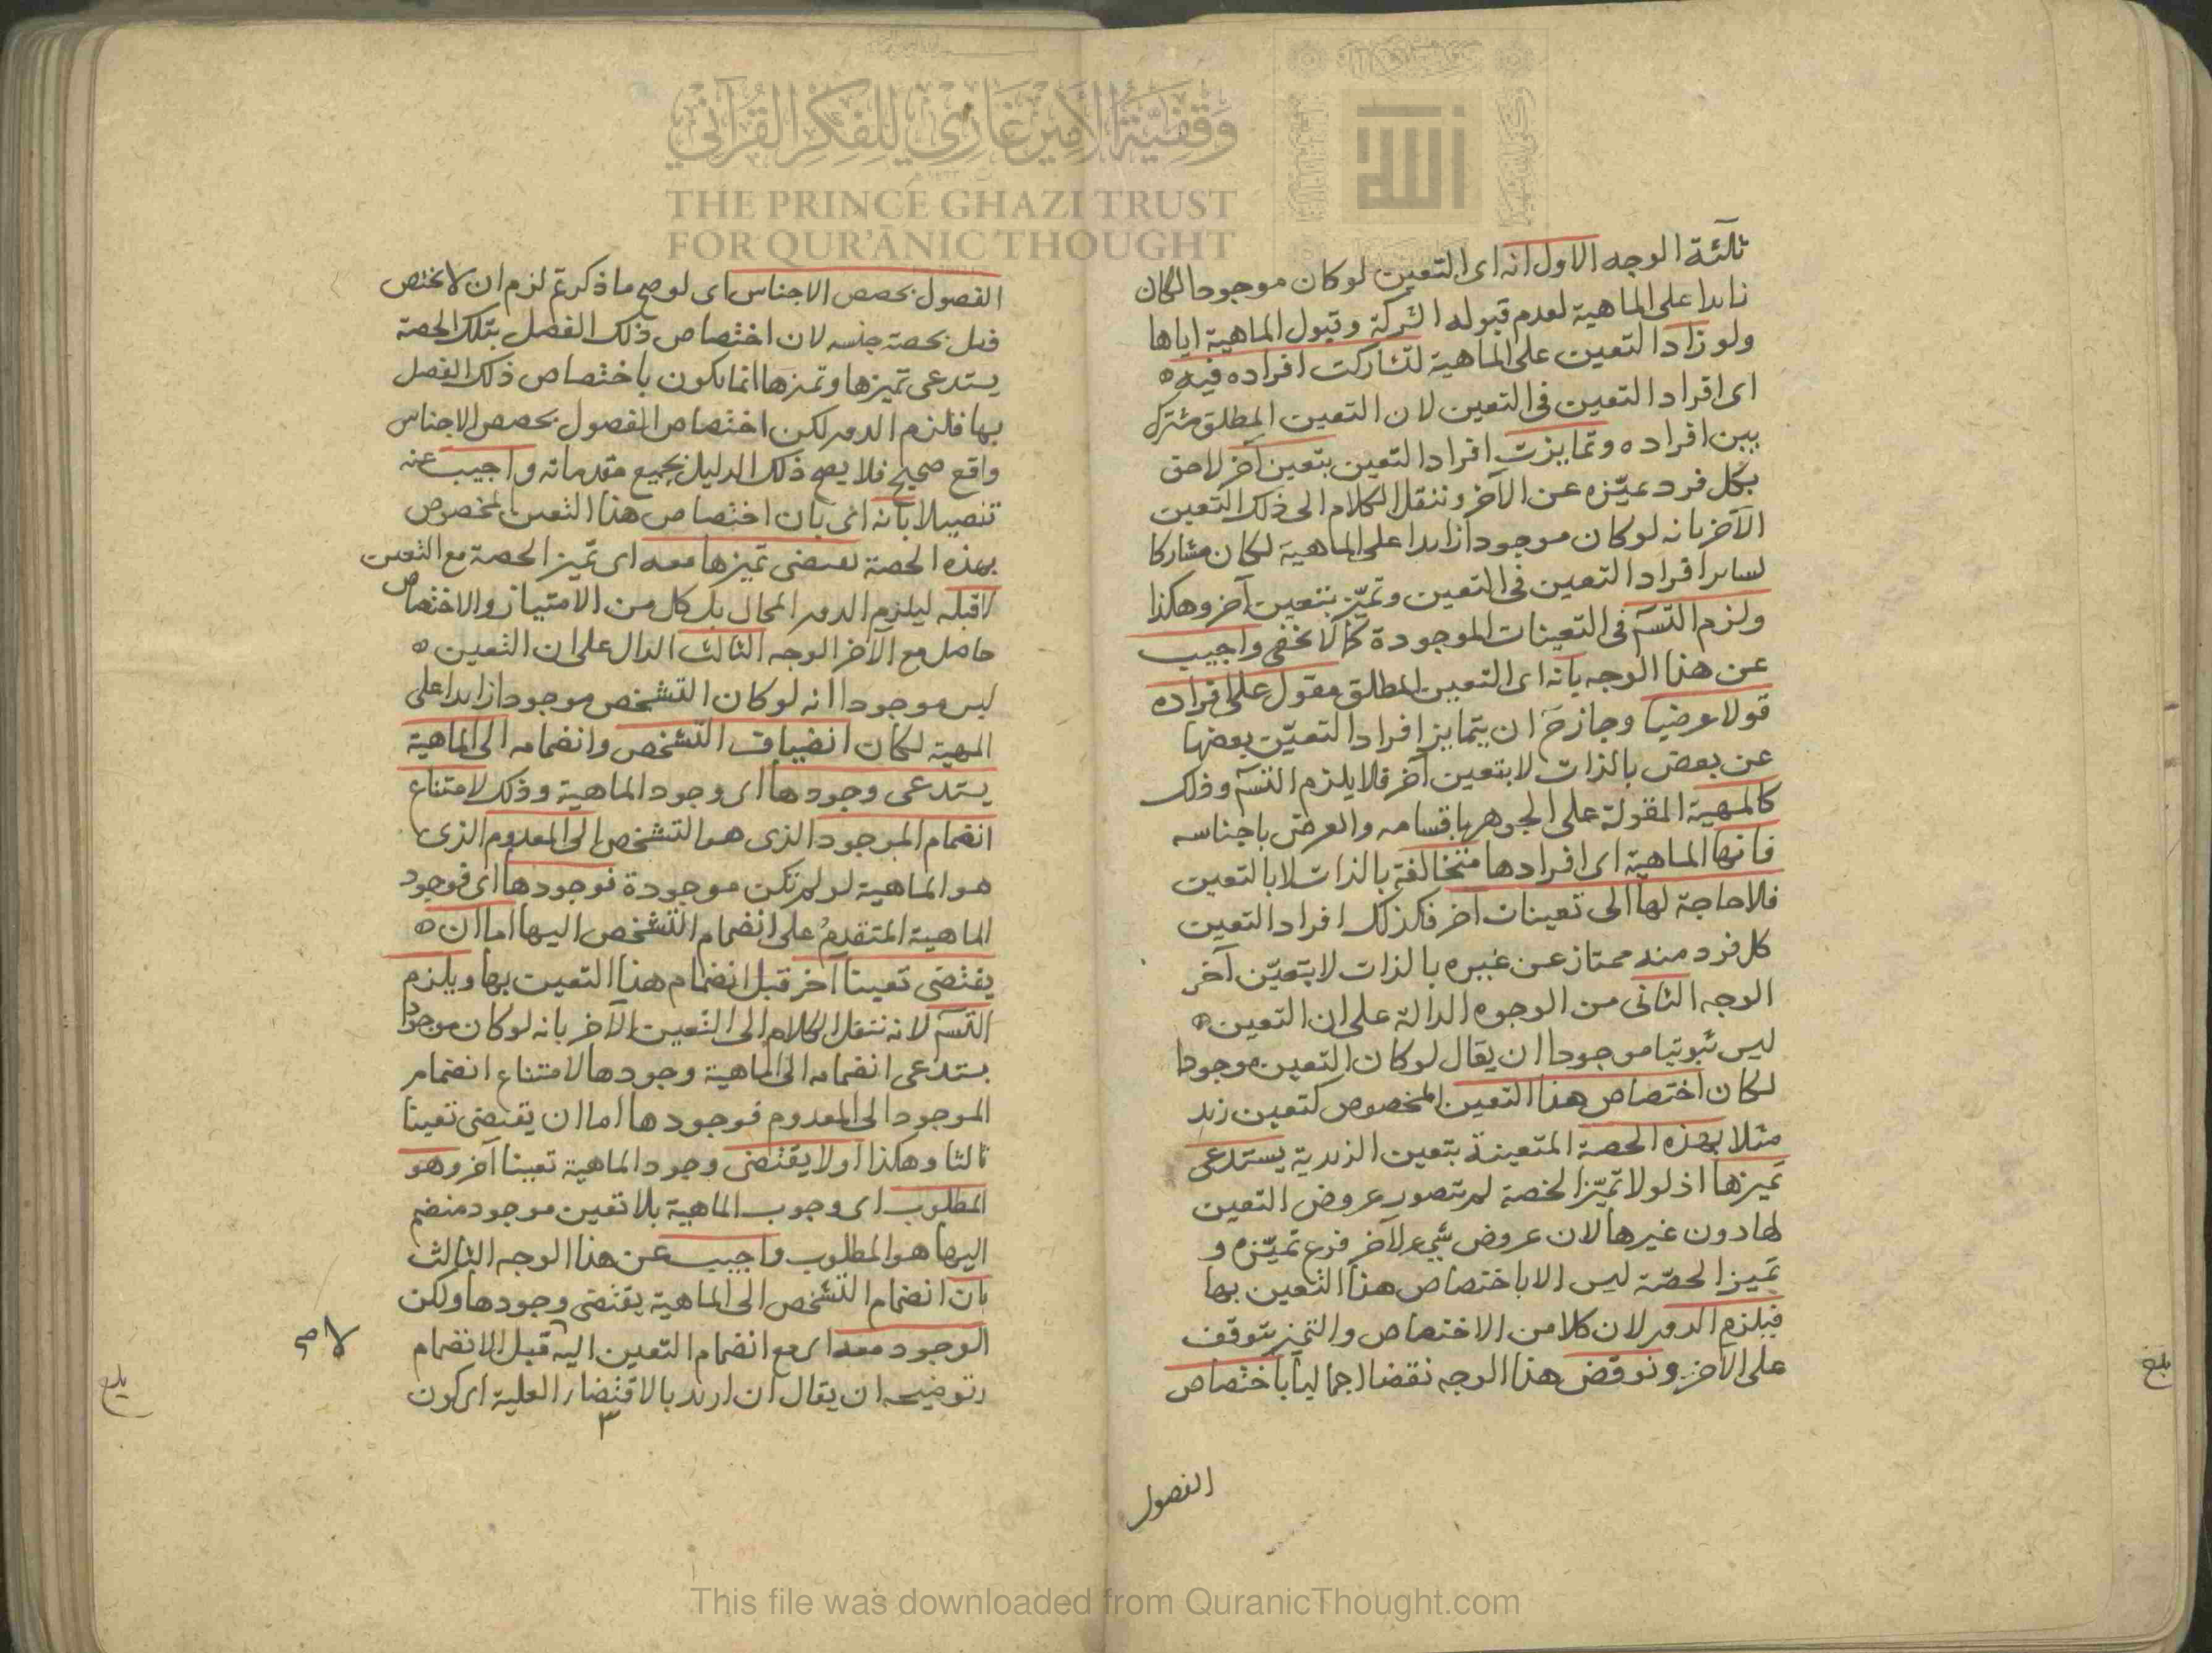 ثلثة الوجه الاول انه اى التعين لو كان موجودا لكان
زايدا على الماهية لعدم قبوله الشركة وقبول الماهية اياها
ولو زاد التعين على الماهية لتشاركت افراده فيه
اى افراد التعين فى التعين لان التعين المطلق مشترك
بين افراده وتمايزت افراد التعين بتعين آخر لاحق
بكل فرد عيّزه عن الآخر وننقل الكلام الى ذلك التعين
الآخر بانه لو كان موجودا زايدا على الماهية لكان مشاركا
لساير افراد التعين فى التعين وتميّز بتعين آخر وهكذا
ولزم التسّه فى التعينات الموجودة كما لا يخفى واجيب
عن هذا الوجه بانه اى التعين المطلق مقول على افراده
قولا عرضيا وجاز حَ ان يتمايز افراد التعيّن بعضها
عن بعض بالذات لا بتعين آخر فلا يلزم التسّه وذلك
كالمهية المقولة على الجوهر باقسامه والعرض باجناسه
فانها الماهية اى افرادها متخالفة بالذات لا بالتعين
فلا حاجة لها الى تعينات آخر فكذلك افراد التعين
كل فرد منه ممتاز عن غيره بالذات لا بتعيّن آخر
الوجه الثانى من الوجوه الدالة على ان التعين
ليس ثبوتيا موجودا ان يقال لو كان التعين موجودا
لكان اختصاص هذا التعين المخصوص كتعين زيد
مثلا بهذه الحصة المتعينة بتعين الزيدية يستدعى
تميزها اذ لولا تميّز الحصة لم يتصور عروض التعين
لها دون غيرها لان عروض شيء لآخر فرع تميّزه و
تميز الحصّة ليس الا باختصاص هذا التعين بها
فيلزم الدور لان كلا من الاختصاص والتميز يتوقف
على الآخر ونوقض هذا الوجه نقضا اجماليا باختصاص
الفصول
بلغ
الفصول بحصص الاجناس اى لو صح ما ذكرتم لزم ان لا يختص
فصل بحصة جنسه لان اختصاص ذلك الفصل بتلك الحصة
يستدعى تميزها وتميزها انما يكون باختصاص ذلك الفصل
بها فلزم الدور لكن اختصاص الفصول بحصص الاجناس
واقع صحيح فلا يصح ذلك الدليل بجميع مقدماته واجيب عنه
تفصيلا بانه اى بان اختصاص هذا التعين المخصوص
بهذه الحصة يقتضى تميزها معه اى تميز الحصة مع التعين
لا قبله ليلزم الدور المحال بل كل من الامتياز والاختصاص
حاصل مع الآخر الوجه الثالث الدال على ان التعين
ليس موجودا انه لو كان التشخص موجودا زايدا على
المهية لكان انضياف التشخص وانضمامه الى الماهية
يستدعى وجودها اى وجود الماهية وذلك لامتناع
انضمام الموجود الذى هو التشخص الى المعدوم الذى
هو الماهية لو لم تكن موجودة فوجودها اى فوجود
الماهية المتقدم على انضمام التشخص اليها اما ان
يقتضى تعينا آخر قبل انضمام هذا التعين بها ويلزم
التسّه لانه ننقل الكلام الى التعين الآخر بانه لو كان موجودا
يستدعى انضمامه الى الماهية وجودها لامتناع انضمام
الموجود الى المعدوم فوجودها اما ان يقتضى تعينا
ثالثا وهكذا او لا يقتضى وجود الماهية تعينا آخر وهو
المطلوب اى وجوب الماهية بلا تعين موجود منضم
اليها هو المطلوب واجيب عن هذا الوجه الثالث
بان انضمام التشخص الى الماهية يقتضى وجودها ولكن
الوجود معه اى مع انضمام التعين اليه قبل الانضمام
وتوضيحه ان يقال ان اريد بالاقتضاء العلية اى كون
٣
لا صح
بلغ
وقفية الأمير غازي للفكر القرآني
THE PRINCE GHAZI TRUST
FOR QUR'ĀNIC THOUGHT
الله
This file was downloaded from QuranicThought.com